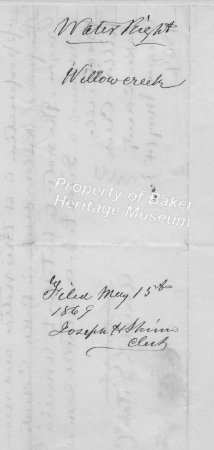 Water Right
Willow creek
Property of Baker
Heritage Museum
Filed May 15th
1869
Joseph H Shinn
Clerk